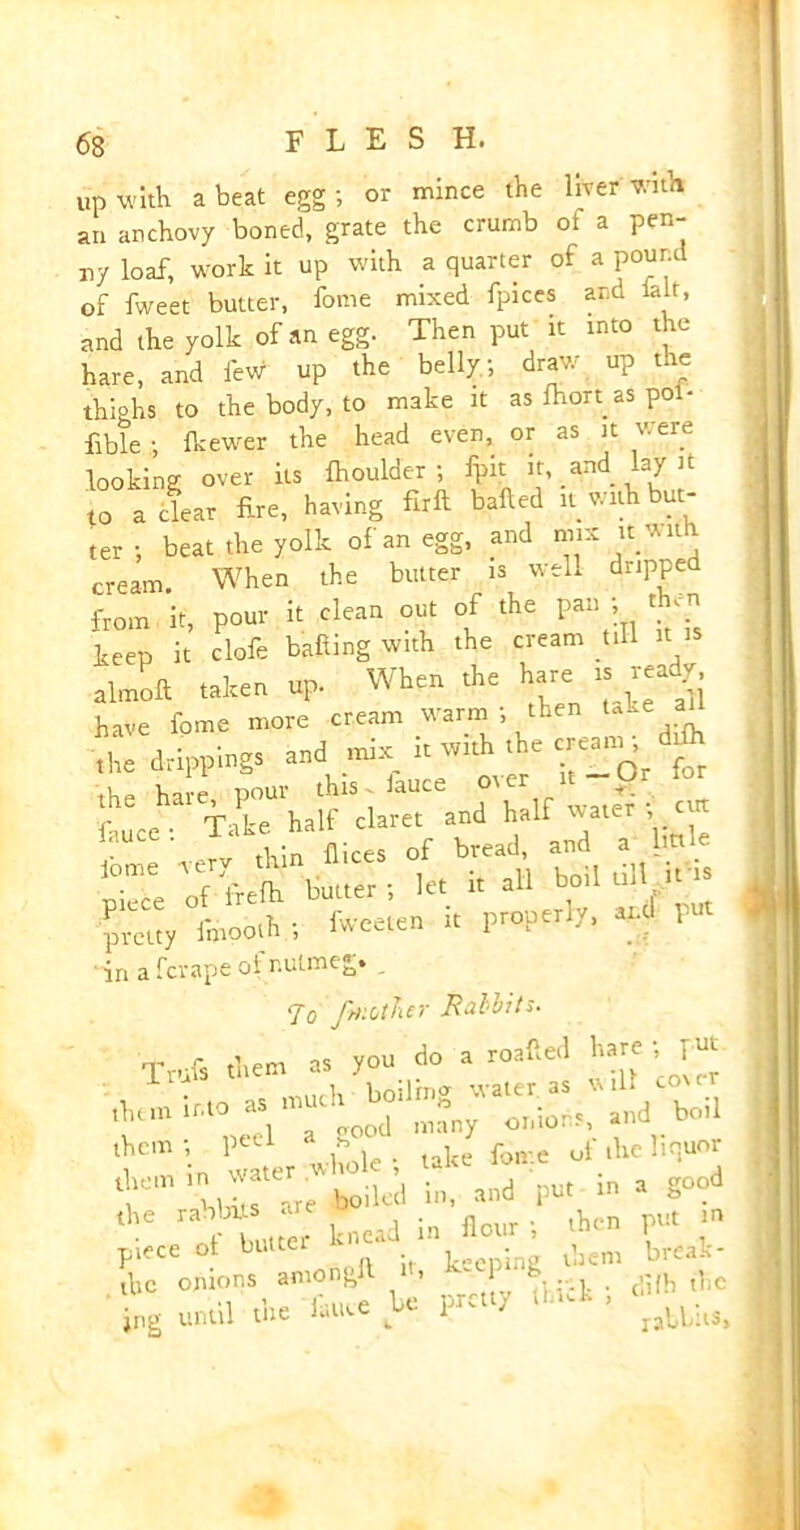 68 FLESH.
up with a beat egg ; or mince the liver with
an anchovy boned, grate the crumb of a pen-
ny loaf, work it up with a quarter of a pound
of ſweet butter, ſome mixed ſpices and ſalt,
and the yolk of an egg. Then put it into the
hare, and ſew up the belly ; draw up the
thighs to the body, to make it as ſhort as poſ-
ſible ; ſkewer the head even, or as it were
looking over its ſhoulder ; ſpit it, and lay it
to a clear fire, having firſt baſted it with but-
ter ; beat the yolk of an egg, and mix it with
cream. When the butter is well dripped
from it, pour it clean out of the pan ; then
keep it cloſe baſting with the cream till it is
almoſt taken up. When the hare is ready,
have ſome more cream warm ; then take all
the drippings and mix it with the cream ; diſh
the hare, pour this ſauce over it—Or for
ſauce : Take half claret and half water ; cut
ſome very thin ſlices of bread, and a little
piece of freſh butter ; let it all boil till it is
pretty ſmooth ; ſweeten it properly, and put
in a ſcrape of nutmeg.
To ſmother Rabbits.
Truſs them as you do a roaſted hare ; put
them into as much boiling water as will cover
them ; peel a good many onions, and boil
them in water whole ; take ſome of the liquor
the rabbits are boiled in, and put in a good
piece of butter knead in flour ; then put in
the onions amongſt it, keeping them break-
ing until the ſauce be pretty thick ; diſh the
rabbits,